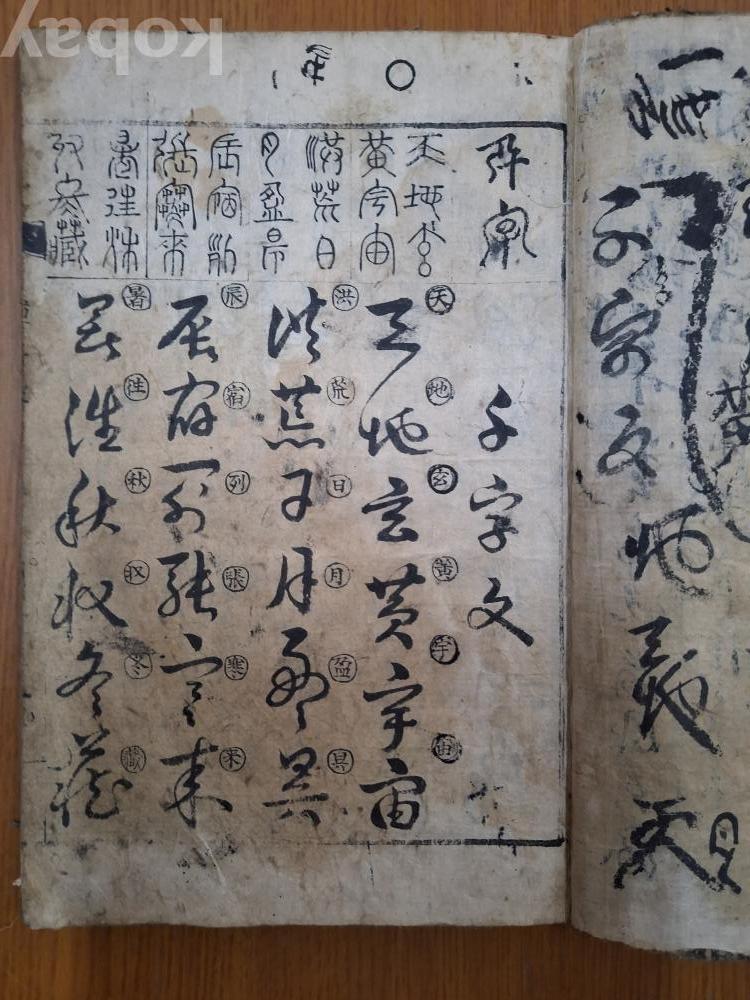 kobay
天地玄
黃宇宙
洪荒日
月盈昃
辰宿列
張寒來
暑往秋
收冬藏
千字文
天地玄黃宇宙
天地玄黃宇宙
洪荒日月盈昃
洪荒日月盈昃
辰宿列張寒來
辰宿列張寒来
暑往秋收冬藏
暑往秋収冬藏